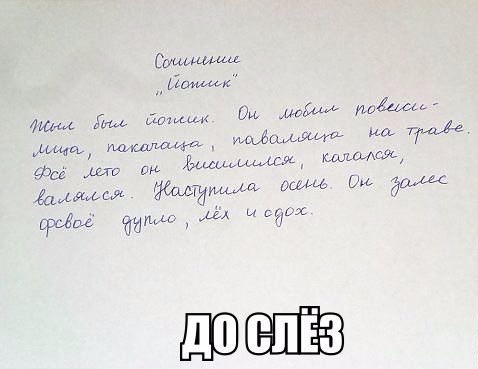 Сочинение
„Йожик“
Жыл был йожик. Он любил повеси-
лица, пакачаца, паваляца на траве.
Фсё лето он висилился, качался,
валялся. Наступила осень. Он залес
фсваё дупло, лёх и сдох.
ДО СЛЁЗ